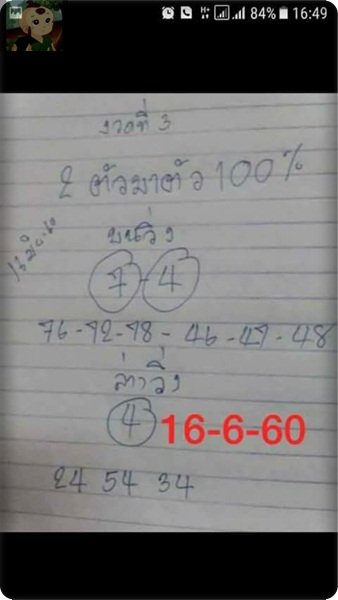 84% 16:49
งวดที่ 3
2 ตัวมาตัว 100%
บนวิ่ง
7-4
76-72-78-46-47-48
ล่างวิ่ง
4 16-6-60
24 54 34